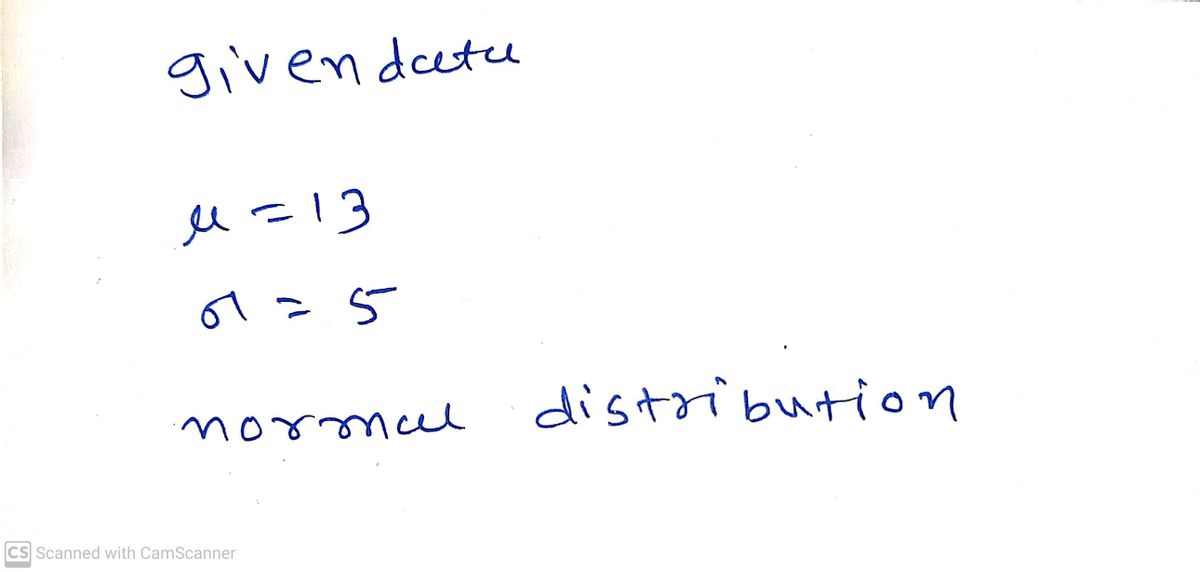 given data
μ = 13
σ = 5
normal distribution
CS Scanned with CamScanner